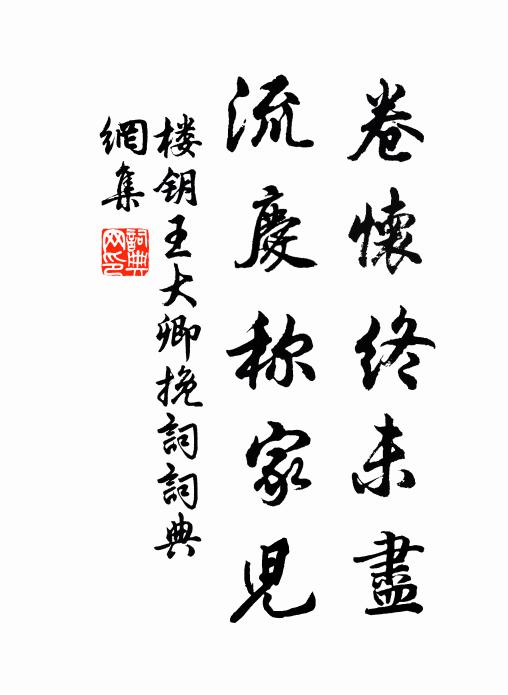 卷懷終未盡
流慶称家児
楼钥王大卿挽詞詞典
網集
詞典
网印